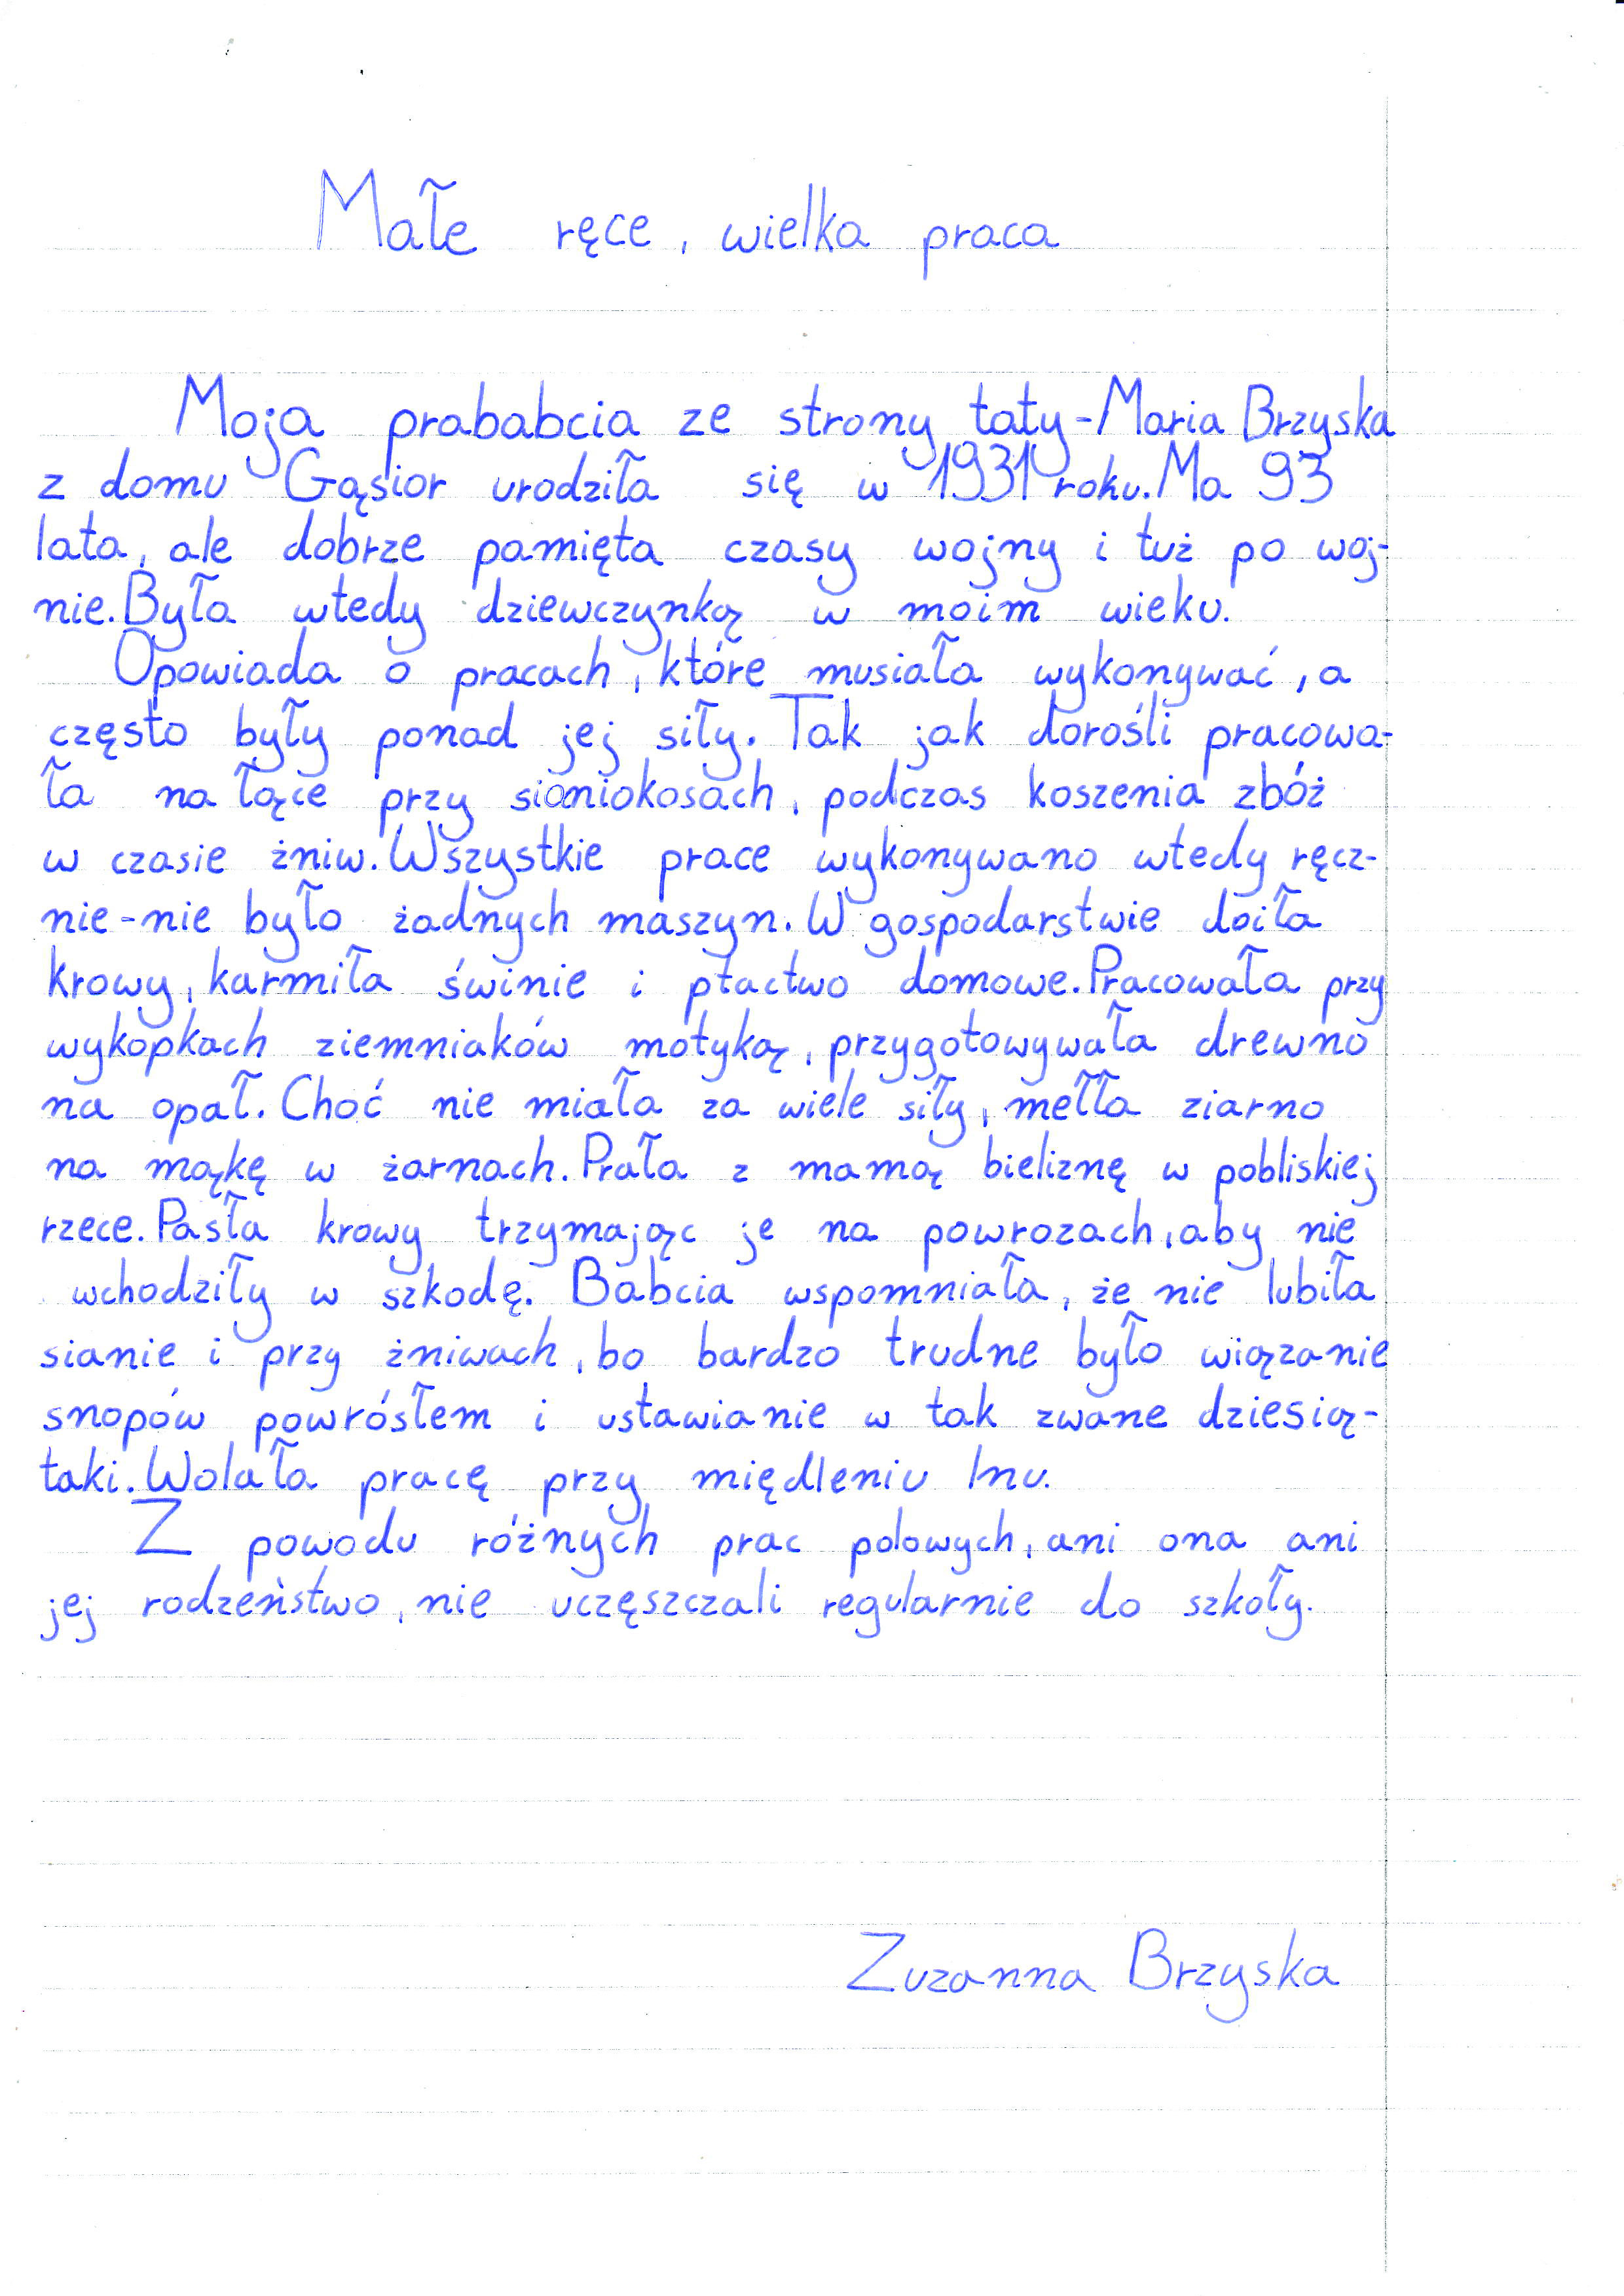 Małe ręce, wielka praca
Moja prababcia ze strony taty-Maria Brzyska
z domu Gąsior urodziła się w 1931 roku. Ma 93
lata, ale dobrze pamięta czasy wojny i tuż po woj-
nie. Była wtedy dziewczynką w moim wieku.
Opowiada o pracach, które musiała wykonywać, a
często były ponad jej siły. Tak jak dorośli pracowa-
ła na łące przy sianiokosach, podczas koszenia zbóż
w czasie żniw. Wszystkie prace wykonywano wtedy ręcz-
nie-nie było żadnych maszyn. W gospodarstwie doiła
krowy, karmiła świnie i ptactwo domowe. Pracowała przy
wykopkach ziemniaków motyką, przygotowywała drewno
na opał. Choć nie miała za wiele siły, mełła ziarno
na mąkę w żarnach. Prała z mamą bieliznę w pobliskiej
rzece. Pasła krowy trzymając je na powrozach, aby nie
wchodziły w szkodę. Babcia wspomniała, że nie lubiła
sianie i przy żniwach, bo bardzo trudne było wiązanie
snopów powrósłem i ustawianie w tak zwane dziesią-
taki. Wolała pracę przy międleniu lnu.
Z powodu różnych prac polowych, ani ona ani
jej rodzeństwo, nie uczęszczali regularnie do szkoły.
Zuzanna Brzyska